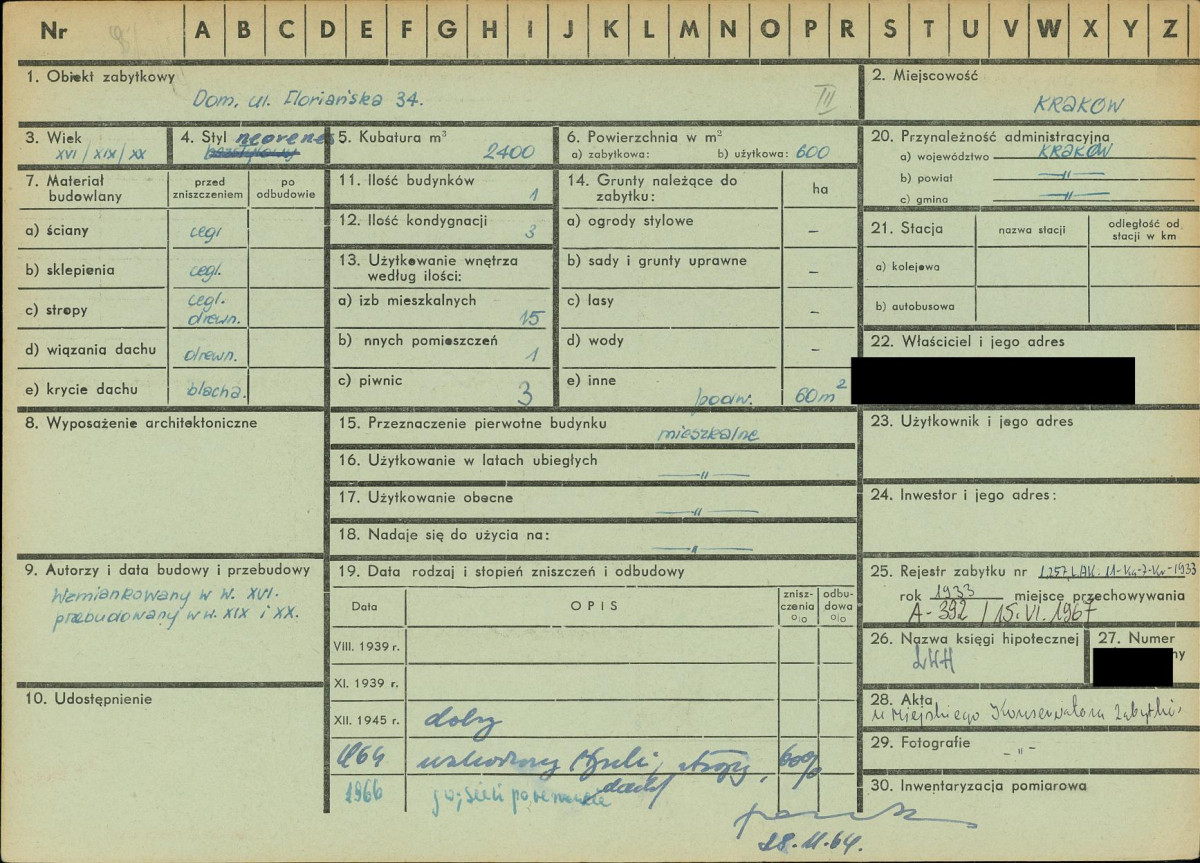 Nr A B C D E F G H I J K L M N O P R S T U V W X Y Z
1. Obiekt zabytkowy
Dom, ul. Floriańska 34.
III
2. Miejscowość
KRAKÓW
3. Wiek
XVI / XIX / XX
4. Styl neorenes
bezstylowy
5. Kubatura m³
2400
6. Powierzchnia w m²
a) zabytkowa: b) użytkowa: 600
20. Przynależność administracyjna
a) województwo KRAKÓW
b) powiat —"—
c) gmina —"—
7. Materiał budowlany
przed zniszczeniem
po odbudowie
a) ściany cegł
b) sklepienia cegł.
c) stropy cegł. drewn.
d) wiązania dachu drewn.
e) krycie dachu blacha.
11. Ilość budynków 1
12. Ilość kondygnacji 3
13. Użytkowanie wnętrza według ilości:
a) izb mieszkalnych 15
b) nnych pomieszczeń 1
c) piwnic 3
14. Grunty należące do zabytku:
ha
a) ogrody stylowe –
b) sady i grunty uprawne –
c) lasy –
d) wody –
e) inne podw. 60 m²
21. Stacja
nazwa stacji
odległość od stacji w km
a) kolejowa
b) autobusowa
22. Właściciel i jego adres
8. Wyposażenie architektoniczne
15. Przeznaczenie pierwotne budynku mieszkalne
16. Użytkowanie w latach ubiegłych —"—
17. Użytkowanie obecne —"—
18. Nadaje się do użycia na: —"—
23. Użytkownik i jego adres
24. Inwestor i jego adres:
9. Autorzy i data budowy i przebudowy
Wzmiankowany w w. XVI.
przebudowany w w. XIX i XX.
10. Udostępnienie
19. Data rodzaj i stopień zniszczeń i odbudowy
Data
OPIS
znisz-czenia %
odbu-dowa %
VIII. 1939 r.
XI. 1939 r.
XII. 1945 r. dobry
1964 stropy, 60%
dachy
1966
28.11.64.
25. Rejestr zabytku nr
rok 1933 miejsce przechowywania
A-392 / 15.VI.1967
26. Nazwa księgi hipotecznej
LWH
27. Numer
ny
28. Akta
u Miejskiego Konserwatora Zabytków
29. Fotografie – " –
30. Inwentaryzacja pomiarowa